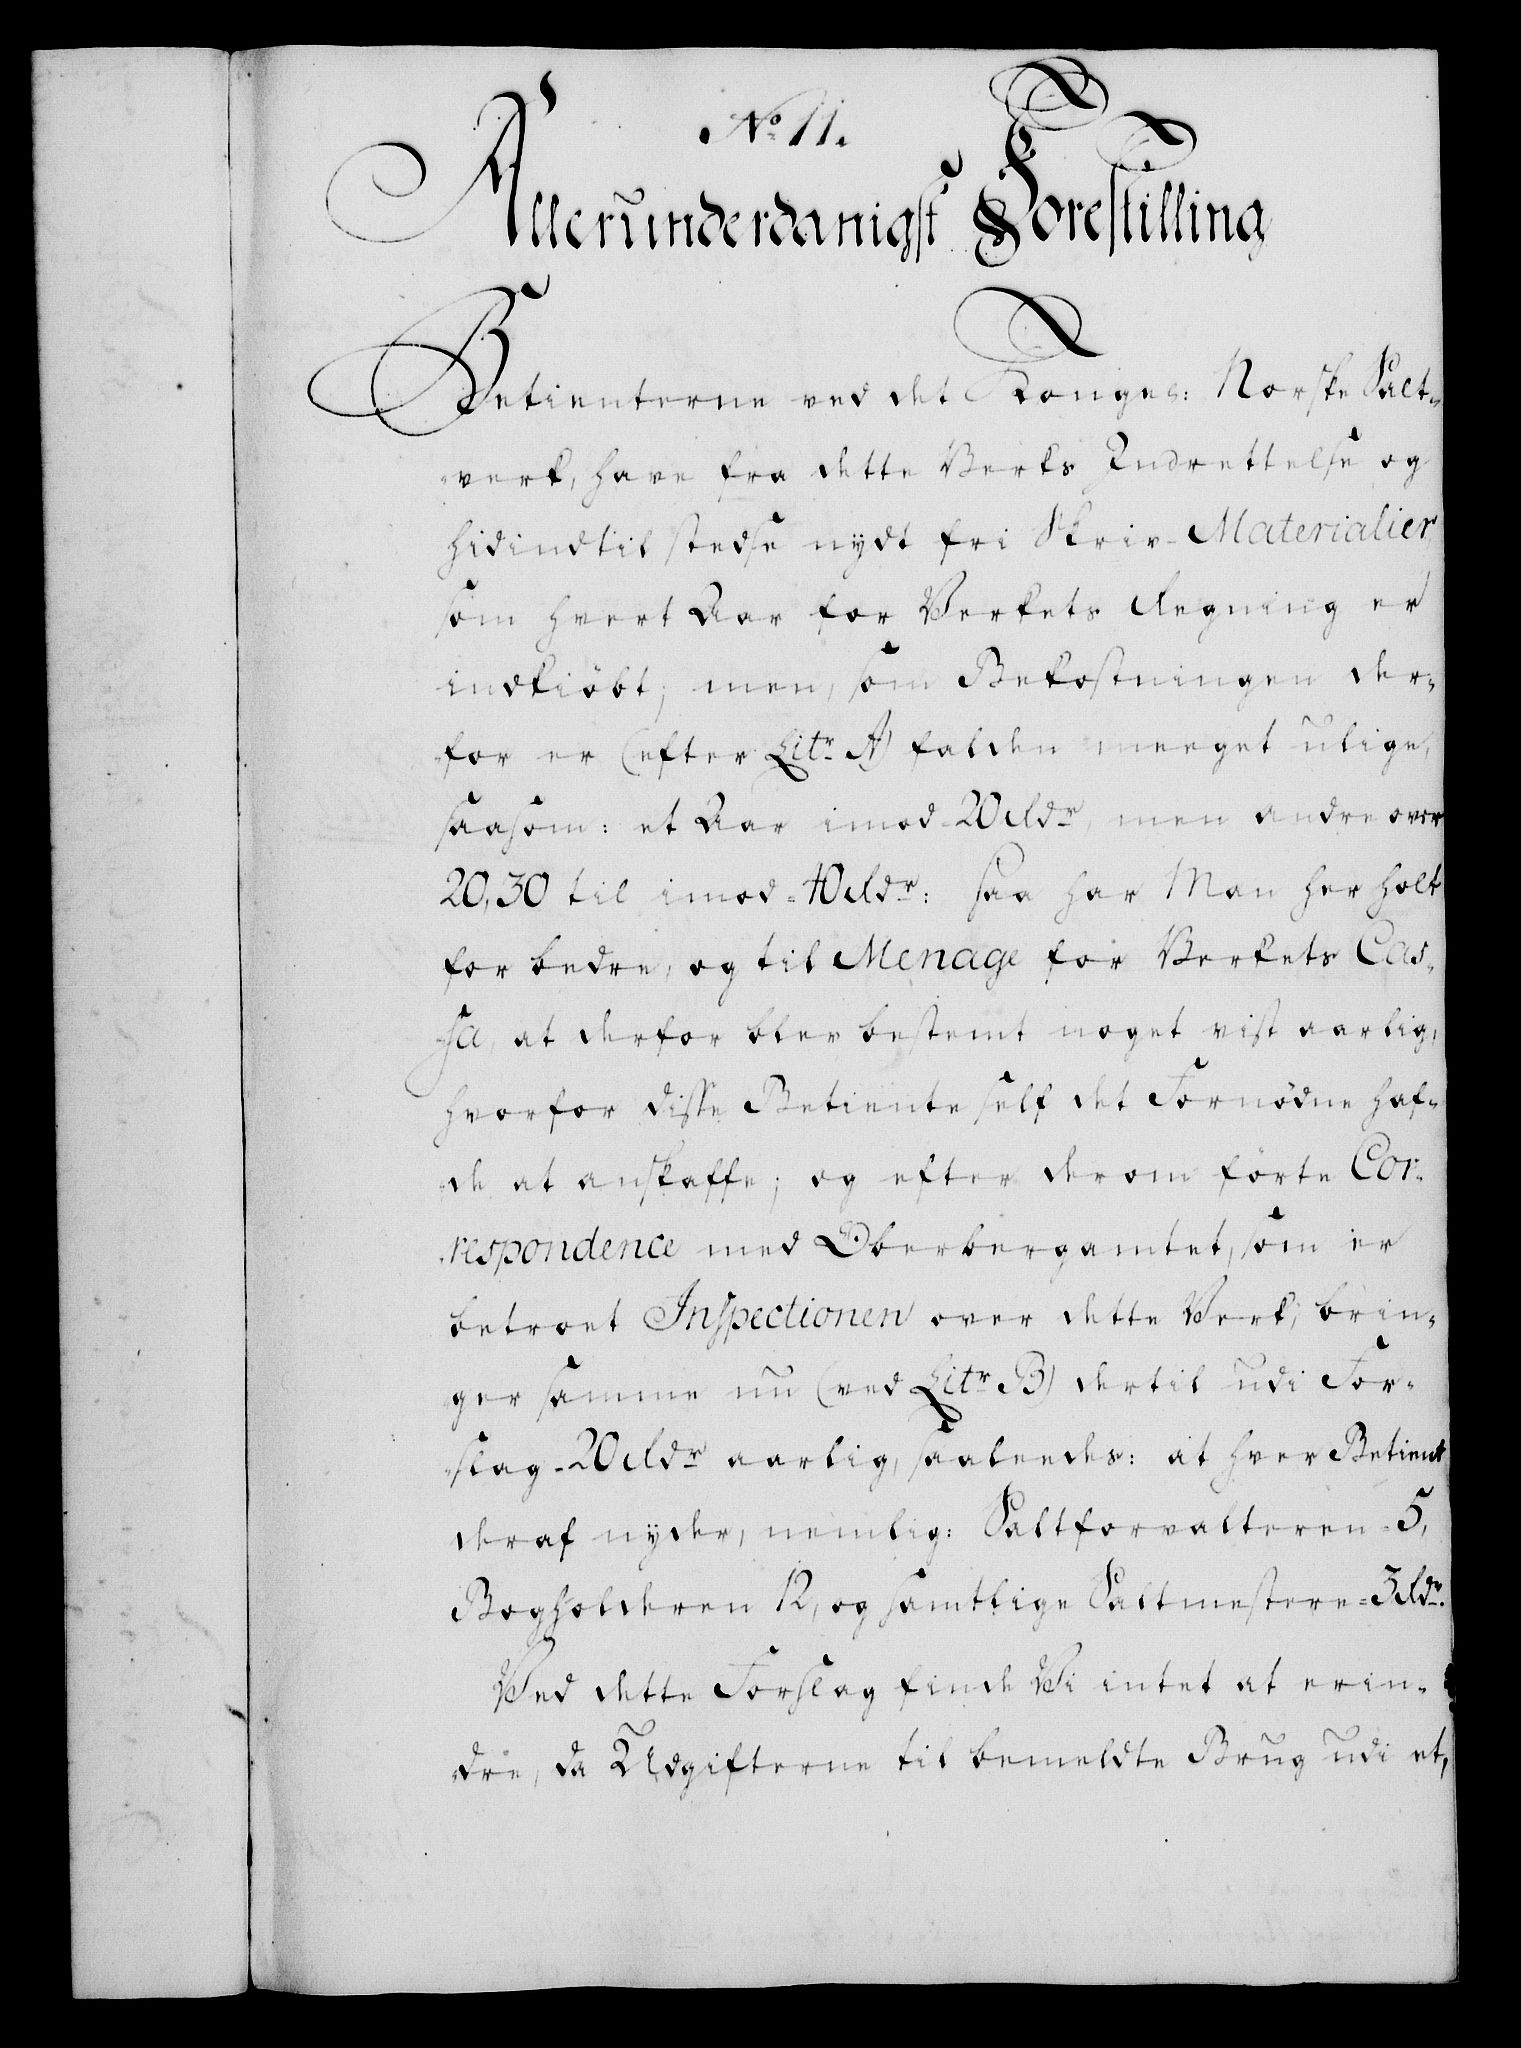 No 11.
Allerunderdanigst Forestilling
Betienterne ved det Konges: Norske Salt-
verk, have fra dette Verks Indrettelse og
hidindtil stedse nydt fri Skriv-Materialier,
som hvert Aar for Verkets Regning er
indkiöbt; men, som Bekostningen der-
for er (efter Litr. A) falden meeget ulige,
saasom: et Aar imod 20 Rdr, men andre over
20, 30 til imod 40 Rdr: saa har Man her holt
for bedre, og til Menage for Verkets Cas-
sa, at derfor blev bestemt noget vist aarlig,
hvorfor disse Betiente self det Fornödne haf-
de at anskaffe; og efter derom förte Cor-
respondence med Oberbergamtet, som er
betroet Inspectionen over dette Verk, brin-
ger samme nu (ved Litr. B) dertil udi For-
slag 20 Rdr aarlig, saaledes: at hver Betient
deraf nyder, nemlig: Saltforvalteren 5,
Bogholderen 12, og samtlige Saltmestere 3 Rdr.
Ved dette Forslag finde Vi intet at erin-
dre, da Udgifterne til bemeldte Brug udi et,